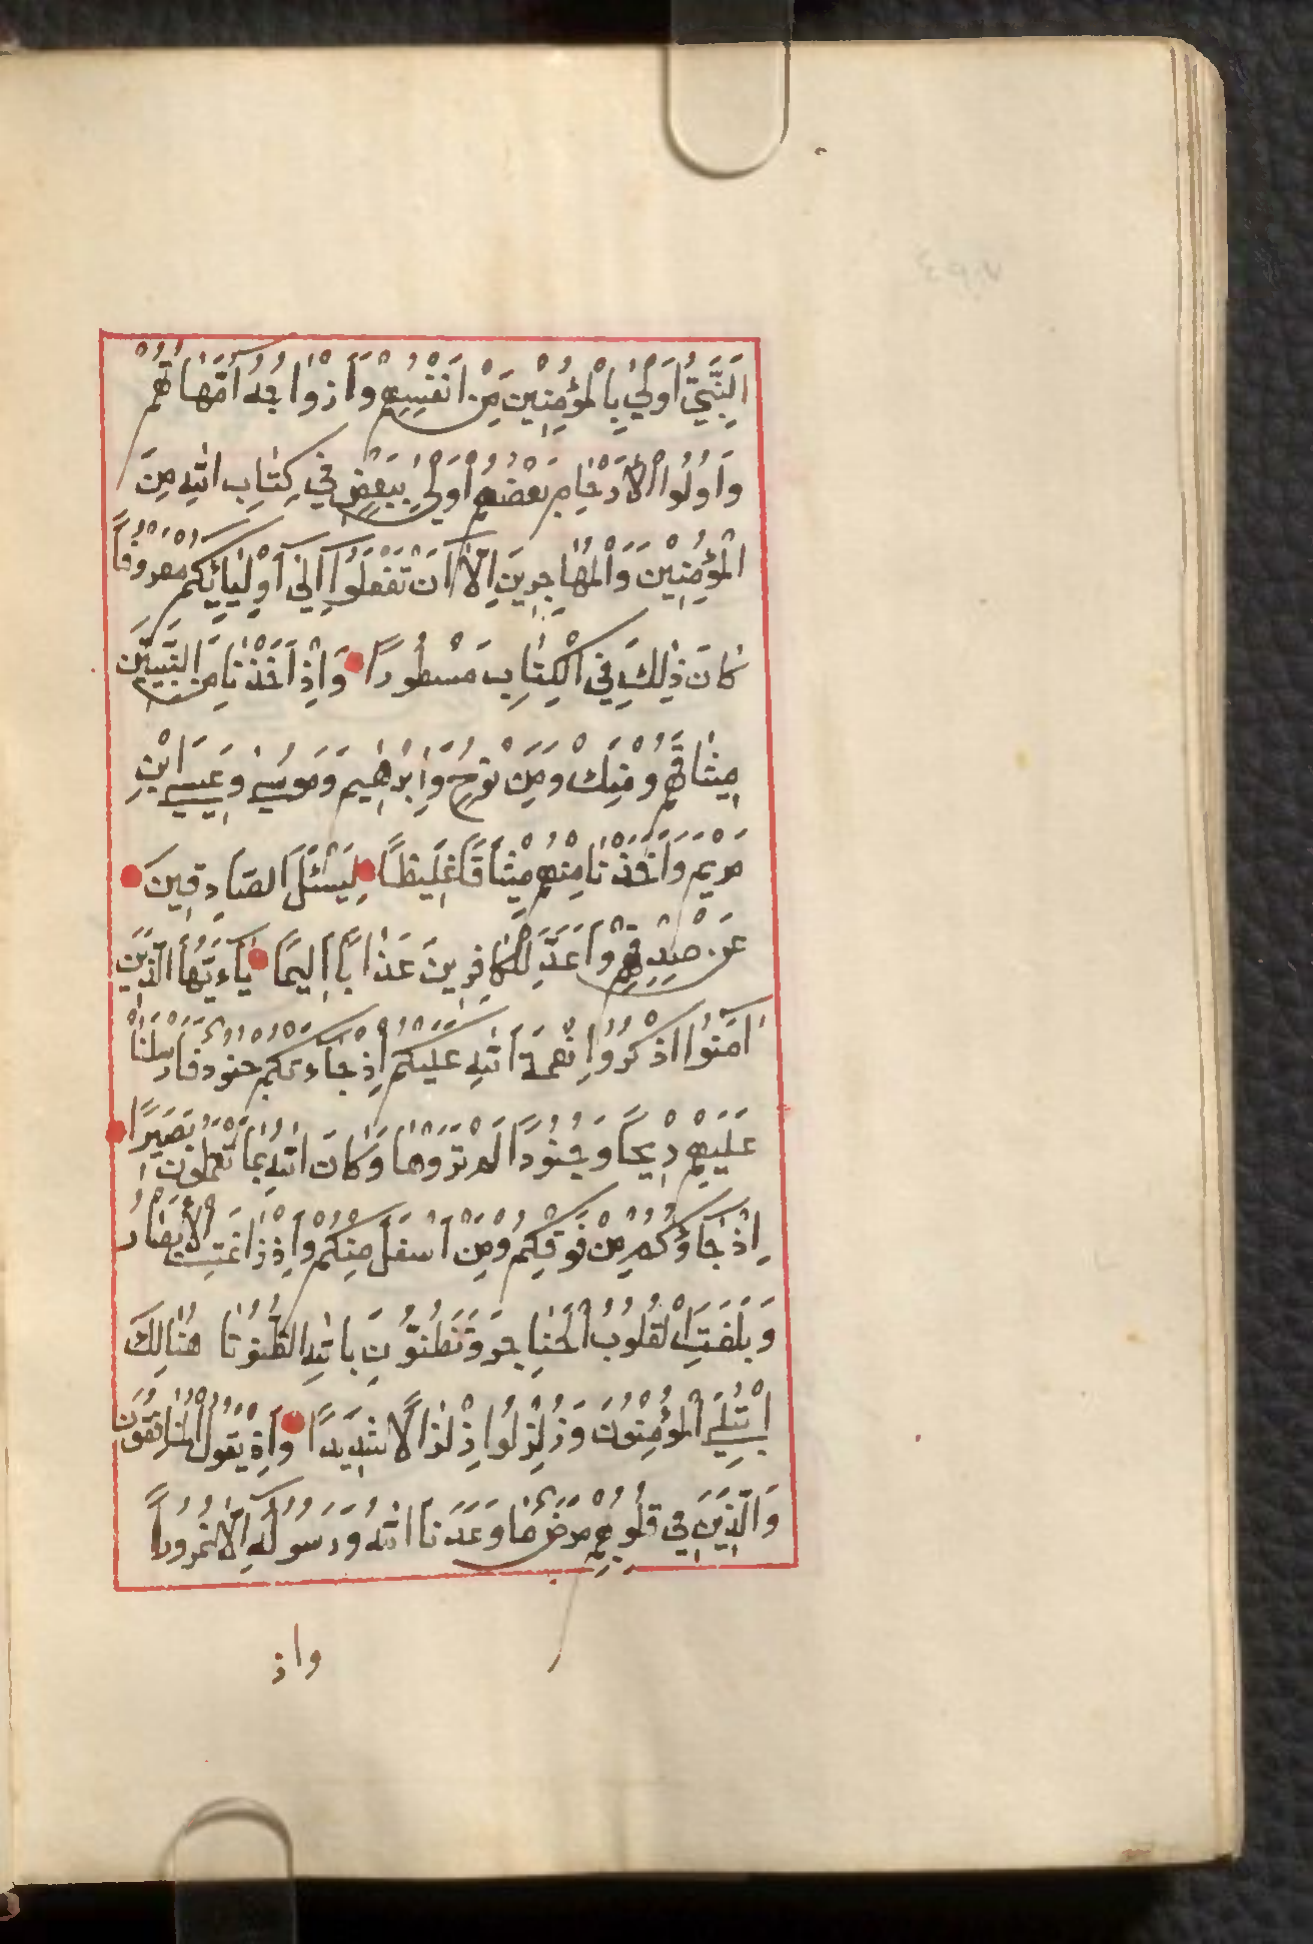 اَلنَّبِيُّ اَوْلٰي بِالْمُؤْمِنِيْنَ مِنْ اَنْفُسِهِمْ وَاَزْوَاجُهُ اُمَّهَاتُهُمْ
وَاُولُوا الْاَرْحَامِ بَعْضُهُمْ اَوْلٰي بِبَعْضٍ فِي كِتَابِ اللّٰهِ مِنَ
الْمُؤْمِنِيْنَ وَالْمُهَاجِرِينَ اِلَّا اَنْ تَفْعَلُوا اِلٰي اَوْلِيَائِكُمْ مَعْرُوفًا
كَانَ ذٰلِكَ فِي الْكِتَابِ مَسْطُورًا وَاِذْ اَخَذْنَا مِنَ النَّبِيِّيْنَ
مِيثَاقَهُمْ وَمِنْكَ وَمِنْ نُوْحٍ وَاِبْرٰهِيمَ وَمُوسٰي وَعِيسَي ابْنِ
مَرْيَمَ وَاَخَذْنَا مِنْهُمْ مِيْثَاقًا غَلِيظًا لِيَسْئَلَ الصَّادِقِينَ
عَنْ صِدْقِهِمْ وَاَعَدَّ لِلْكَافِرِينَ عَذَابًا اَلِيمًا يَاءَيُّهَا الَّذِيْنَ
اٰمَنُوا اذْكُرُوا نِعْمَةَ اللّٰهِ عَلَيْكُمْ اِذْ جَاءَتْكُمْ جُنُودٌ فَاَرْسَلْنَا
عَلَيْهِمْ رِيْحًا وَجُنُودًا لَمْ تَرَوْهَا وَكَانَ اللّٰهُ بِمَا تَعْمَلُونَ بَصِيْرًا
اِذْ جَاؤُكُمْ مِنْ فَوْقِكُمْ وَمِنْ اَسْفَلَ مِنْكُمْ وَاِذْ زَاغَتِ الْاَبْصَارُ
وَبَلَغَتِ الْقُلُوبُ الْحَنَاجِرَ وَتَظُنُّونَ بِاللّٰهِ الظُّنُوْنَا هُنَالِكَ
ابْتُلِيَ الْمُؤْمِنُونَ وَزُلْزِلُوا زِلْزَالًا شَدِيْدًا وَاِذْ يَقُولُ الْمُنَافِقُونَ
وَالَّذِيْنَ فِي قُلُوبِهِمْ مَرَضٌ مَا وَعَدَنَا اللّٰهُ وَرَسُولُهُ اِلَّا غُرُورًا
واذ